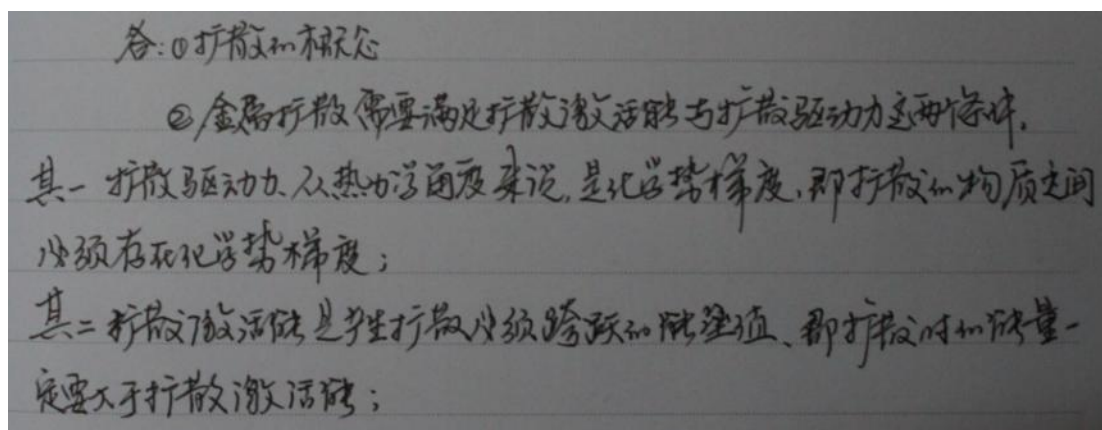 答:①扩散的概念
②金属扩散需要满足扩散激活能与扩散驱动力这两个条件.
其一 扩散驱动力、从热力学角度来说,是化学势梯度,即扩散的物质之间
必须存在化学势梯度;
其二 扩散激活能是发生扩散必须跨跃的能垒值、即扩散时的能量一
定要大于扩散激活能;